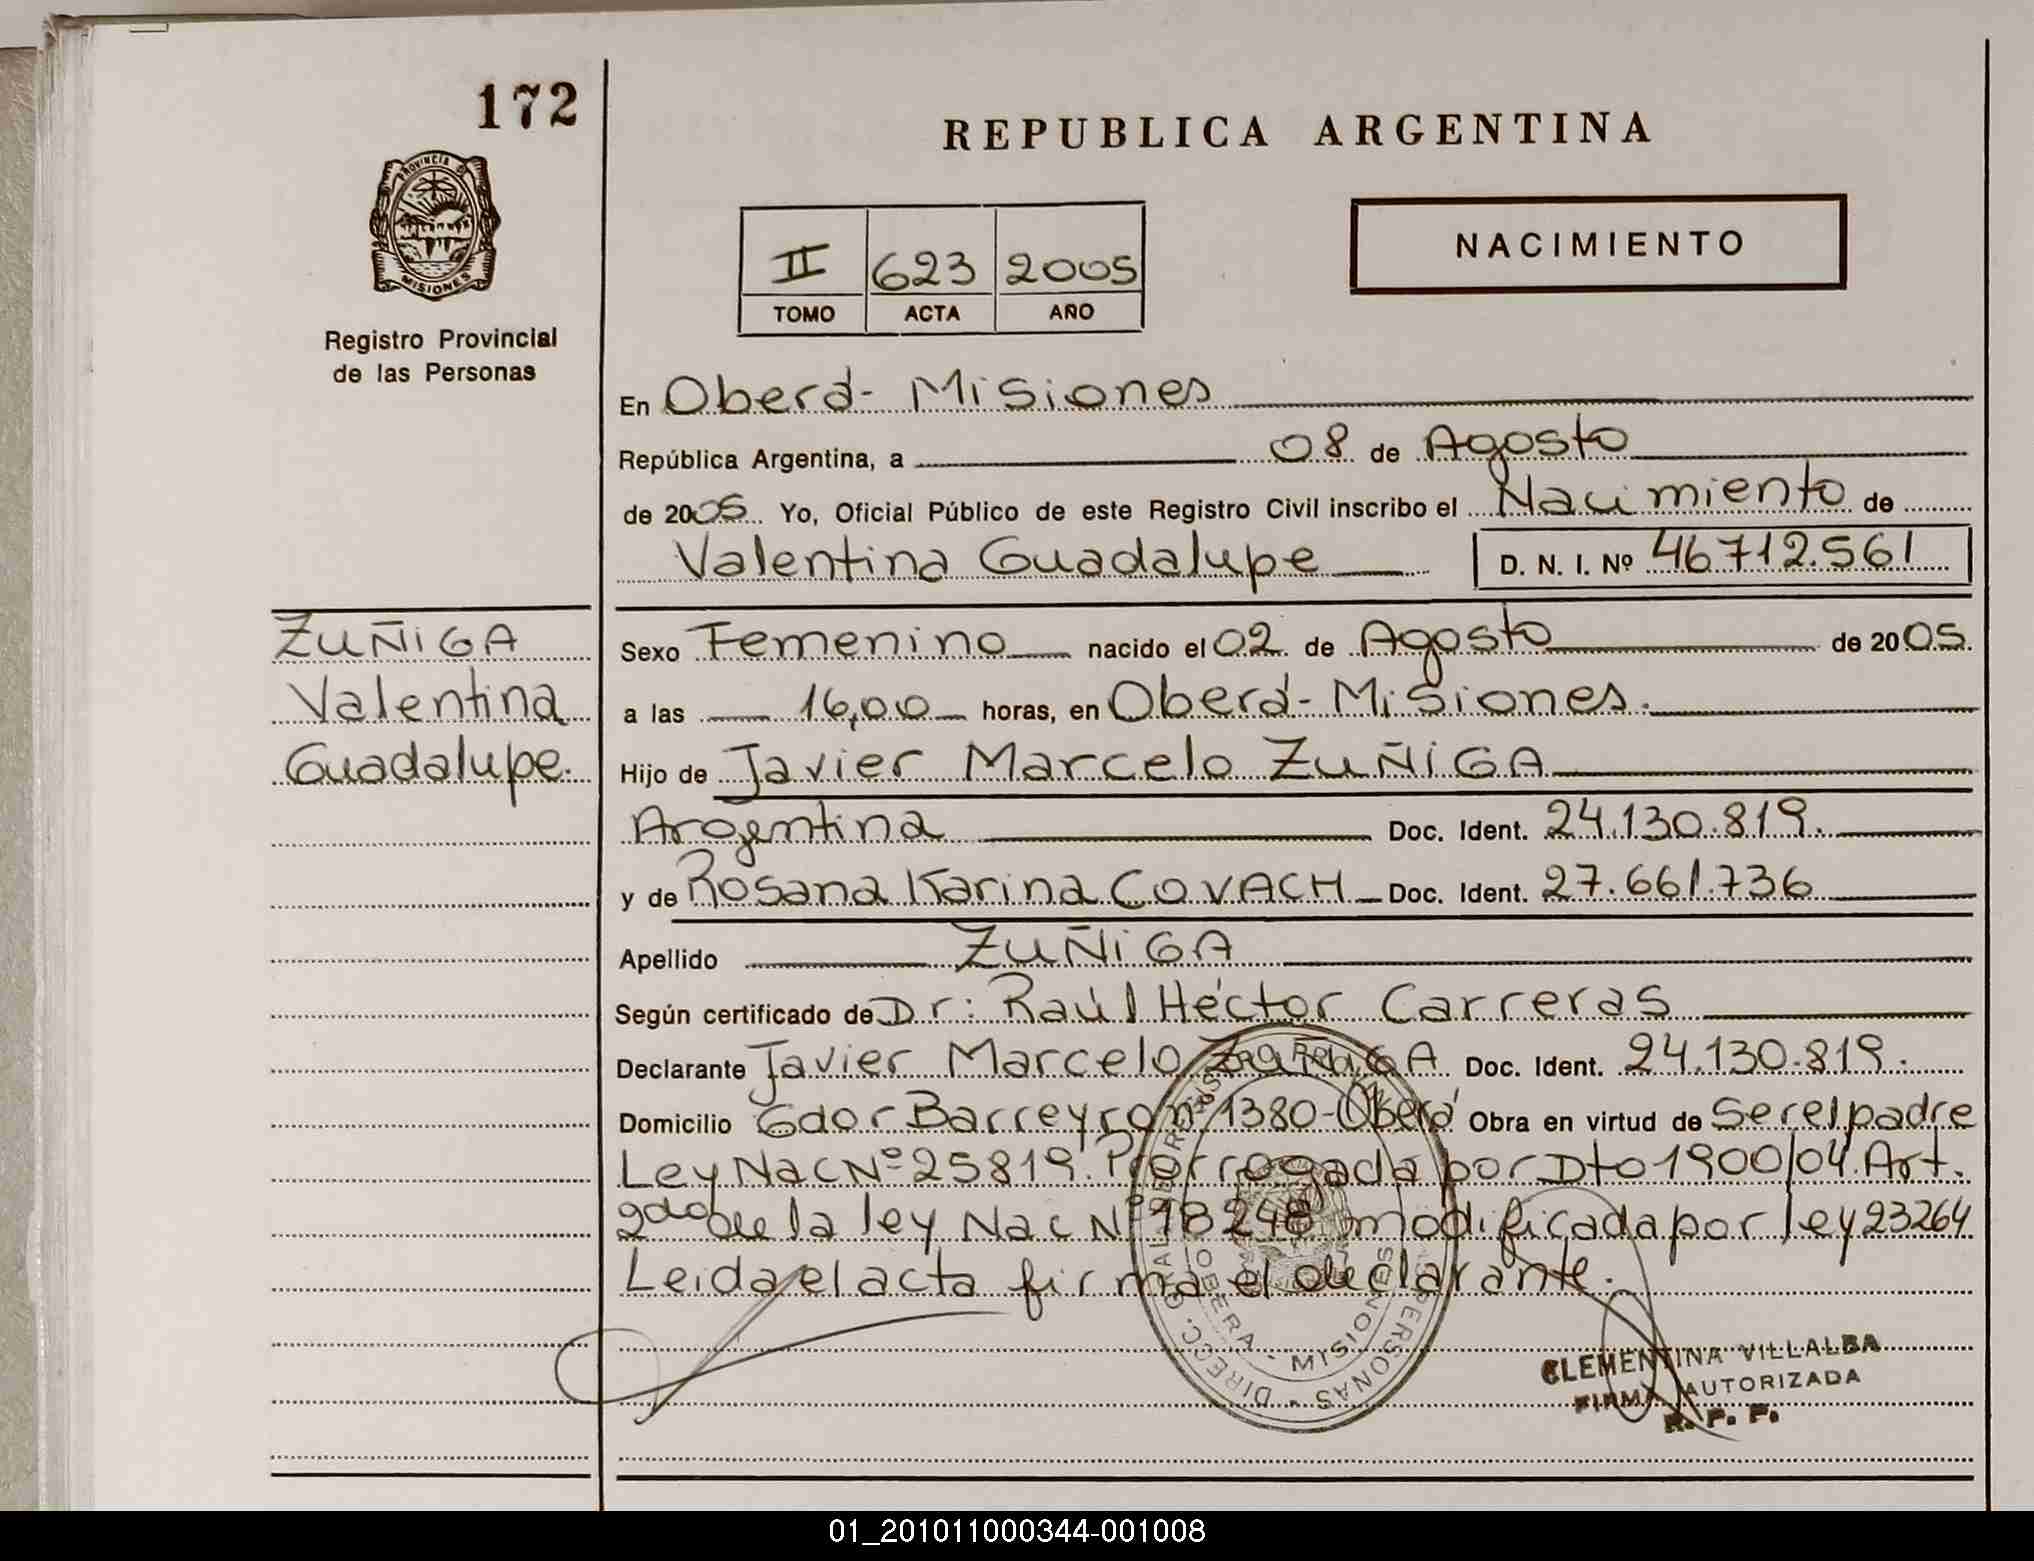 172
REPUBLICA ARGENTINA
PROVINCIA
MISIONES
Registro Provincial
de las Personas
II 623 2005
TOMO ACTA AÑO
NACIMIENTO
En Oberá - Misiones
República Argentina, a 08 de Agosto
de 2005 Yo, Oficial Público de este Registro Civil inscribo el Nacimiento de
Valentina Guadalupe D. N. I. Nº 46.712.561
ZUÑIGA
Valentina
Guadalupe.
Sexo Femenino nacido el 02 de Agosto de 2005.
a las 16,00 horas, en Oberá - Misiones.
Hijo de Javier Marcelo ZUÑIGA
Argentina Doc. Ident. 24.130.819.
y de Rosana Karina COVACH Doc. Ident. 27.661.736
Apellido ZUÑIGA
Según certificado de Dr: Raúl Héctor Carreras
Declarante Javier Marcelo ZUÑIGA Doc. Ident. 24.130.819.
Domicilio Gdor Barreyro nº 1380 - Oberá Obra en virtud de Ser el padre
Ley Nac Nº 25819. Prorrogada por Dto 1900/04. Art.
2do de la ley Nac Nº 18248 modificada por ley 23264
Leida el acta firma el declarante.
OBERA - MISIONES
PERSONAS - DIRECC. GRAL.
CLEMENTINA VILLALBA
FIRMA AUTORIZADA
R. P. P.
01_201011000344-001008